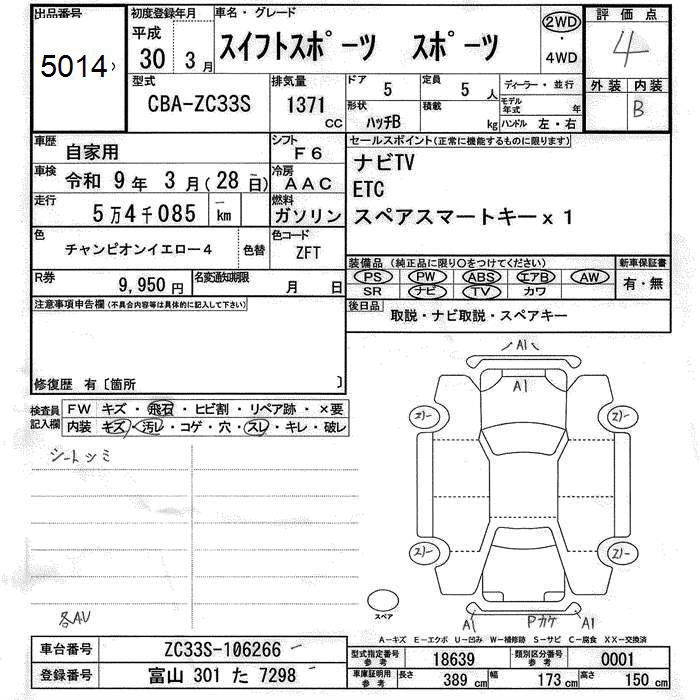 出品番号
5014
初度登録年月
平成
30年 3月
車名・グレード
スイフトスポーツ スポーツ
2WD
・
4WD
評価点
4
型式
CBA-ZC33S
排気量
1371
CC
ドア
5
定員
5人
形状
ハッチB
積載
kg
ディーラー・並行
モデル年式 年
ハンドル 左・右
外装 内装
B
車歴
自家用
シフト
F6
車検
令和 9年 3月(28日)
冷房
AAC
走行
5万4千085 km
燃料
ガソリン
色
チャンピオンイエロー4
色替
色コード
ZFT
R券
9,950円
名変通知期限
月 日
セールスポイント(正常に機能するものに限ります)
ナビTV
ETC
スペアスマートキーx1
装備品(純正品に限り○をつけてください)
PS PW ABS エアB AW
SR ナビ TV カワ
新車保証書
有・無
後日品
取説・ナビ取説・スペアキー
注意事項申告欄(不具合内容等は具体的に記入して下さい)
修復歴 有〔箇所 〕
検査員記入欄
FW キズ・飛石・ヒビ割・リペア跡・×要
内装 キズ・汚レ・コゲ・穴・スレ・キレ・破レ
シートシミ
各AU
A1
A1
スペア
A1
Pカケ
A1
A-キズ E-エクボ U-凹み W-補修跡 S-サビ C-腐食 XX-交換済
車台番号
ZC33S-106266
登録番号
富山 301 た 7298
型式指定番号
参考
18639
類別区分番号
参考
0001
車庫証明用
参考
長さ
389 cm
幅
173 cm
高さ
150 cm